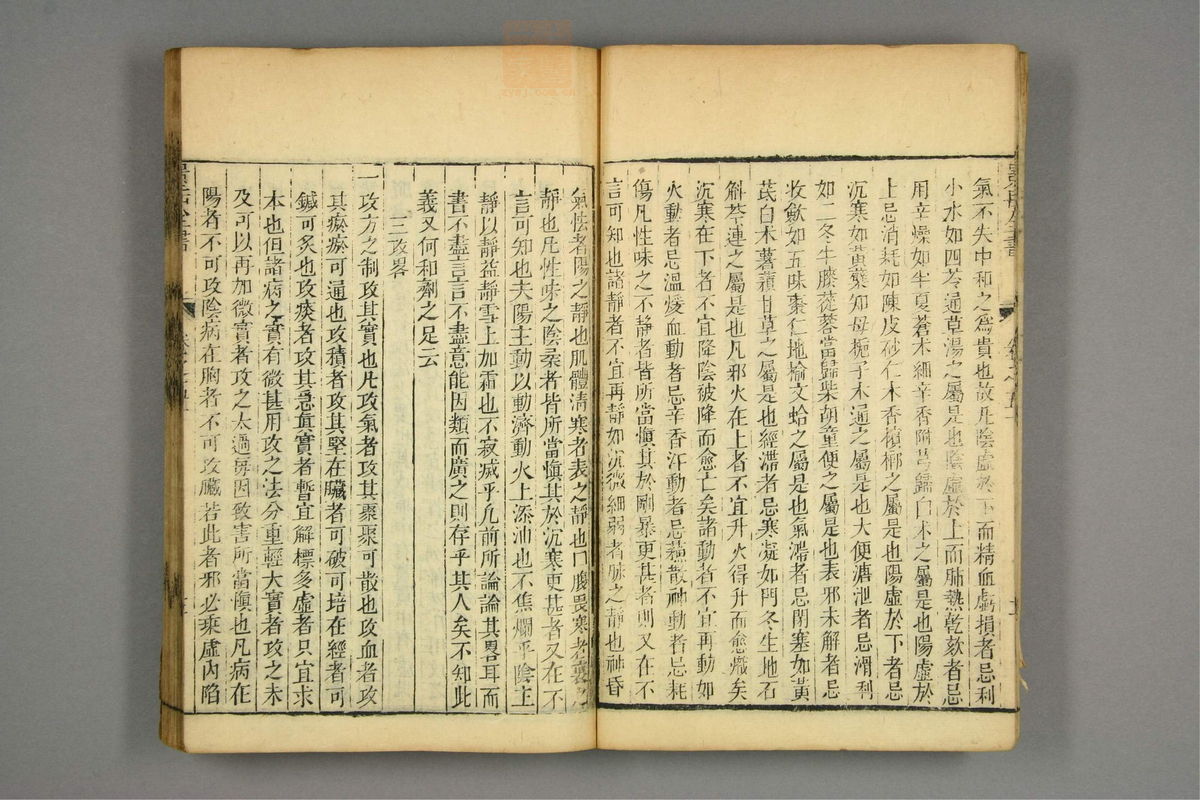 氣不失中和之爲貴也故凡陰虛於下而精血虧損者忌利
小水如四苓通草湯之屬是也陰虛於上而肺熱乾欬者忌
用辛燥如半夏蒼朮細辛香附芎歸白朮之屬是也陽虛於
上忌消耗如陳皮砂仁木香檳榔之屬是也陽虛於下者忌
沉寒如黃蘗知母梔子木通之屬是也大便溏泄者忌滑利
如二冬牛膝蓯蓉當歸柴胡童便之屬是也表邪未解者忌
收斂如五味棗仁地榆文蛤之屬是也氣滯者忌閉塞如黃
芪白朮薯蕷甘草之屬是也經滯者忌寒凝如門冬生地石
斛芩連之屬是也凡邪火在上者不宜升火得升而愈熾矣
沉寒在下者不宜降陰被降而愈亡矣諸動者不宜再動如
火動者忌溫煖血動者忌辛香汗動者忌蘓散神動者忌耗
傷凡性味之不靜者皆所當愼其於剛暴更甚者則又在不
言可知也諸靜者不宜再靜如沉微細弱者脉之靜也神昏
氣怯者陽之靜也肌體清寒者表之靜也口腹畏寒者裏之
靜也凡性味之陰柔者皆所當愼其於沉寒更甚者又在不
言可知也夫陽主動以動濟動火上添油也不焦爛乎陰主
靜以靜益靜雪上加霜也不寂滅乎凡前所論論其畧耳而
書不盡言言不盡意能因類而廣之則存乎其人矣不知此
義又何和劑之足云
三攻畧
一攻方之制攻其實也凡攻氣者攻其聚聚可散也攻血者攻
其瘀瘀可通也攻積者攻其堅在臟者可破可培在經者可
鍼可炙也攻痰者攻其急眞實者暫宜解標多虛者只宜求
本也但諸病之實有微甚用攻之法分重輕大實者攻之未
及可以再加微實者攻之太過每因致害所當愼也凡病在
陽者不可攻陰病在胸者不可攻臟若此者邪必乘虛內陷